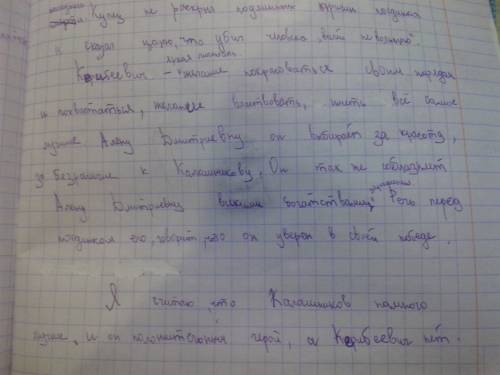 поединка
Купец не раскрыл подлинных причин поединка
и сказал царю, что убил человека "вольной волею"
Кирибеевич – желание покрасоваться своим нарядом
и похвастаться, желание властвовать, иметь всё самое
лучшее Алену Дмитриевну он выбирает за красоту,
за безразличие к Калашникову. Он так же соблазняет
Алену Дмитриевну всякими богатствами. Речь перед
поединком его, говорит, что он уверен в своей победе.
Я считаю, что Калашников намного
лучше, и он положительный герой, а Кирибеевич нет.